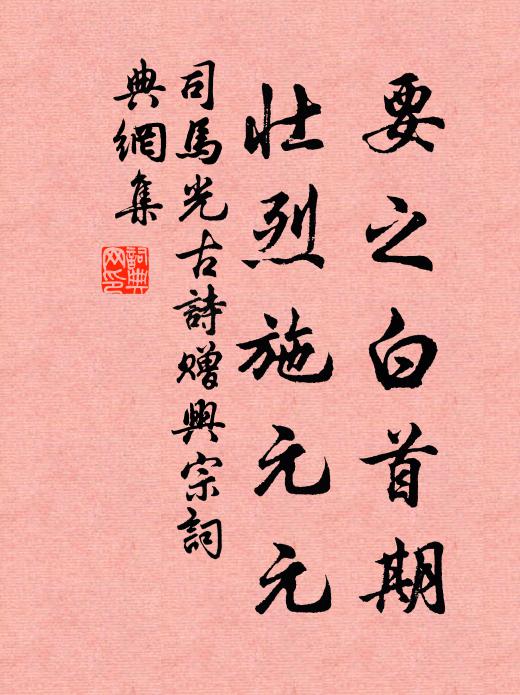 要之白首期
壯烈施元元
司馬光古詩贈興宗詞
典網集
詞典
网印